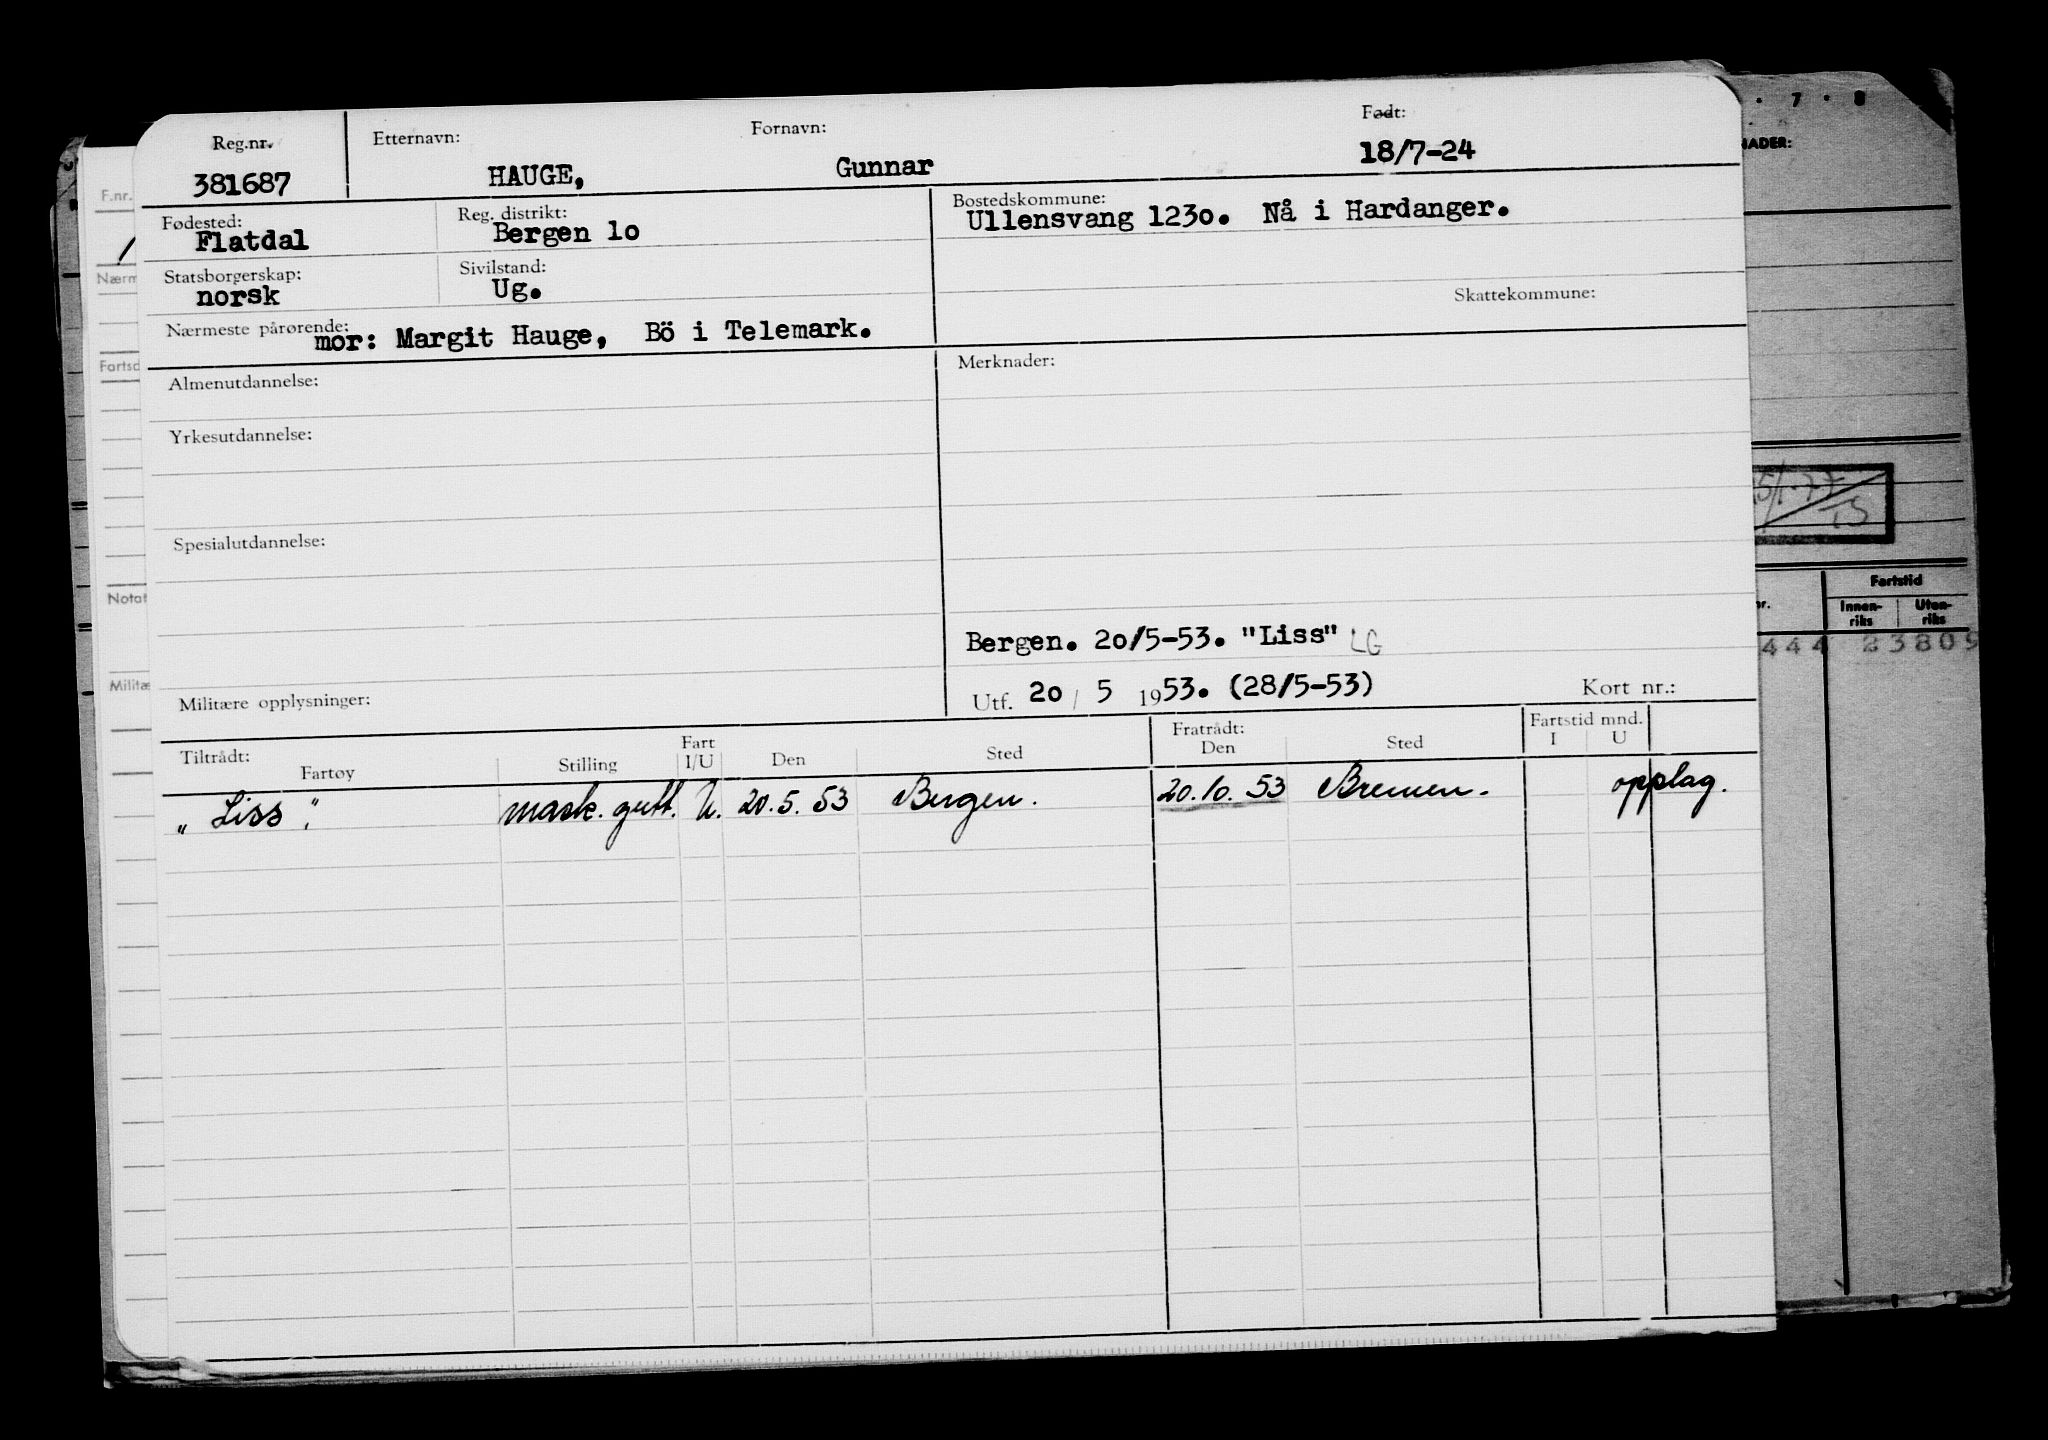 Reg.nr.
381687
Etternavn:
HAUGE,
Fornavn:
Gunnar
Født:
18/7-24
Fødested:
Flatdal
Reg. distrikt:
Bergen 1o
Bostedskommune:
Ullensvang 123o. Nå i Hardanger.
Statsborgerskap:
norsk
Sivilstand:
Ug.
Skattekommune:
Nærmeste pårørende:
mor: Margit Hauge, Bö i Telemark.
Almenutdannelse:
Merknader:
Yrkesutdannelse:
Spesialutdannelse:
Bergen. 2o/5-53. "Liss" LG
Militære opplysninger:
Utf. 2o / 5 1953. (28/5-53)
Kort nr.:
Tiltrådt:
Fartøy
Stilling
Fart
I/U
Den
Sted
Fratrådt:
Den
Sted
Fartstid mnd.
I U
"Liss". mask. gutt. U. 20.5.53 Bergen. 20.10.53 Bremen. opplag.
F.nr.
Nærm
Fartsd
Notat
Militæ
. 7 . 8
NADER:
Fartstid
nr.
Innen-
riks
Uten-
riks
444 23809